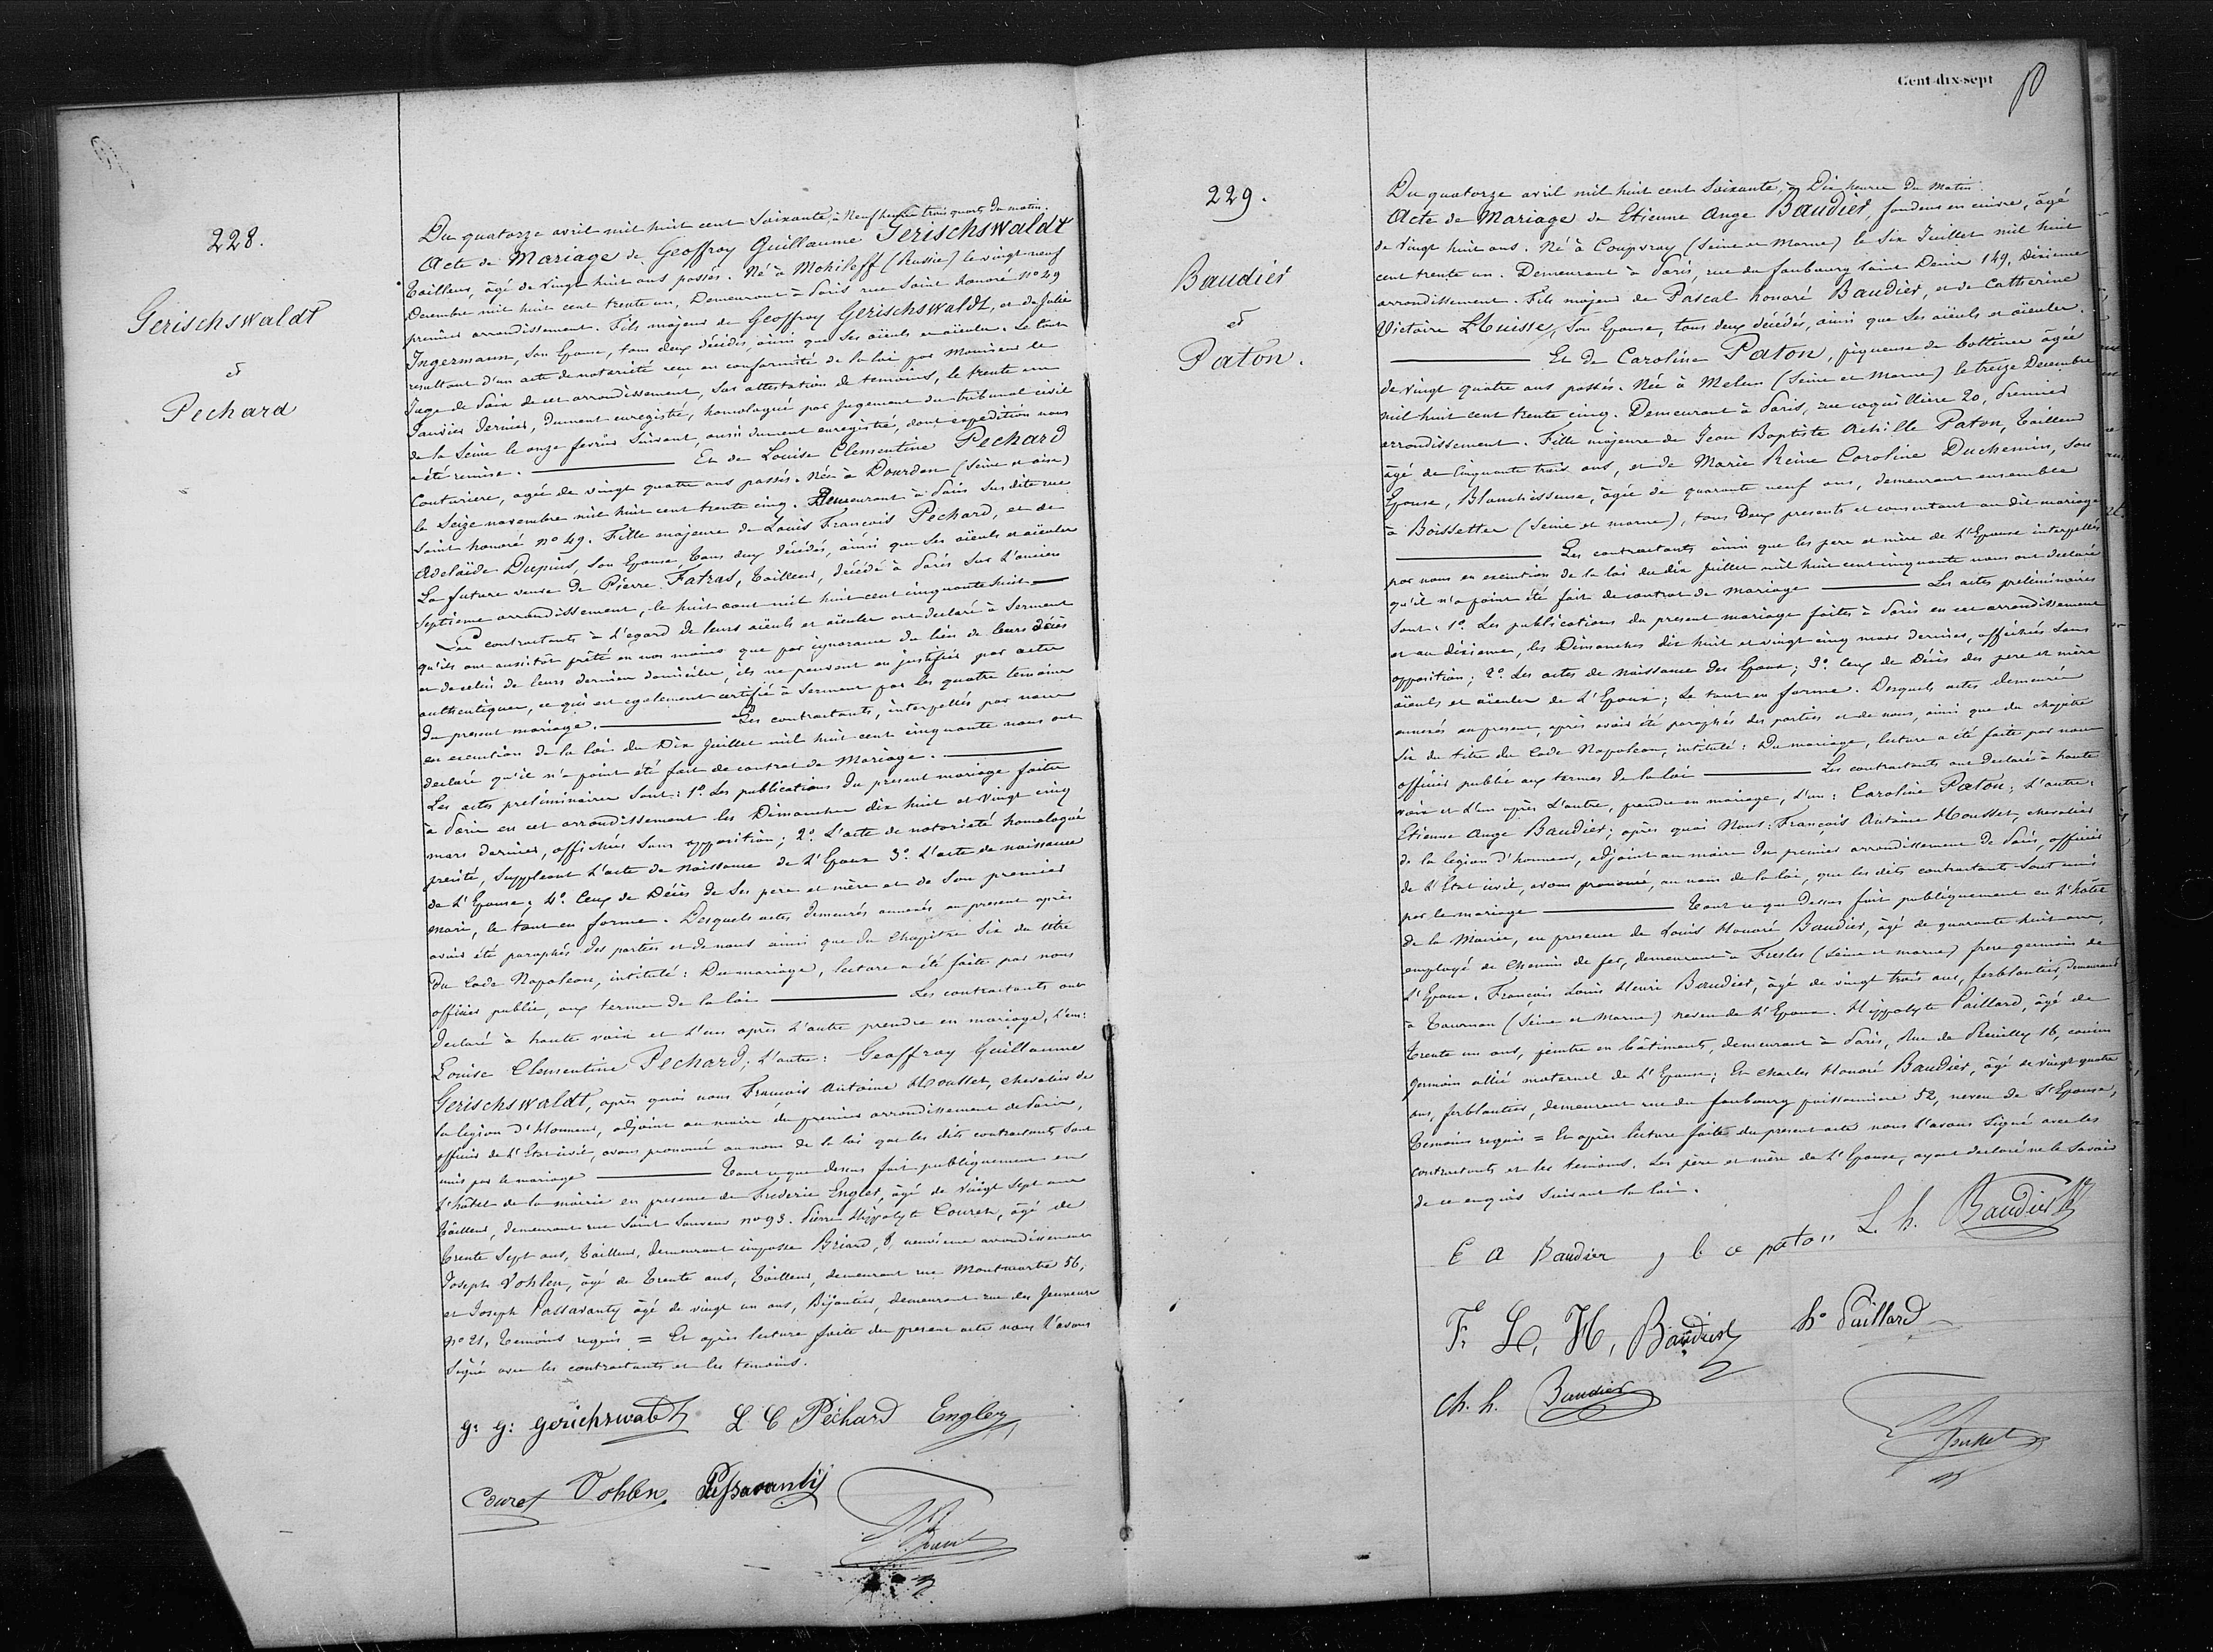 228.
Gerischswaldt
et
Pechard
Du quatorze avril mil huit cent Soixante, à Neuf heures trois quarts du matin.
Acte de Mariage de Geoffroy Guillaume Gerischswaldt
Tailleur, âgé de vingt huit ans passés. Né à Mohileff (Russie) le vingt neuf
Decembre mil huit cent trente un, Demeurant à Paris rue Saint honoré No 49
premier arrondissement. Fils majeur de Geoffroy Gerischswaldt, et de Julie
Ingermann, son Epouse, tous deux décédés, ainsi que ses aïeuls et aïeules. Le tout
resultant d'un acte de notoriété reçu en conformité de la loi par Monsieur le
Juge de Paix de cet arrondissement, sur attestation de temoins, le trente un
Janvier dernier, Dument enregistré, homologué par Jugement du tribunal civil
de la Seine le onze fevrier suivant, aussi dument enregistré, dont expedition nous
a été remise. Et de Louise Clementine Pechard
Couturiere, agée de vingt quatre ans passés. Née à Dourdan (Seine et oise)
le Seize novembre mil huit cent trente cinq. Demeurant à Paris Sus dite rue
Saint honoré no 49. Fille majeure de Louis François Pechard, et de
Adelaïde Dupuis, son Epouse, tous deux décédés, ainsi que ses aïeuls et aïeules
La future veuve de Pierre Fatras, tailleur, décédé à Paris sur l'ancien
Septieme arrondissement, le huit aout mil huit cent cinquante huit
Les contractants à l'egard de leurs aïeuls et aieules ont declaré à Serment
qu'ils ont aussitôt prêté en nos mains que par ignorance du lieu de leurs décès
et de celui de leurs derniers domiciles, ils ne peuvent en justifier par actes
authentiques, ce qui est egalement certifié à Serment par les quatre temoins
du present mariage. Les contractants, interpellés par nous
en execution de la loi du Dix Juillet mil huit cent cinquante nous ont
declaré qu'il n'a point été fait de contrat de Mariage.
Les actes preliminaires sont: 1o Les publications du present mariage faites
à Paris en cet arrondissement les Dimanches dix huit et vingt cinq
mars dernier, affichées sans opposition; 2o L'acte de notoriété homologué
precité, suppleant l'acte de Naissance de l'Epoux 3o L'acte de naissance
de l'Epouse; 4o Ceux de Décès de ses pere et mère et de son premier
mari, le tout en forme. Desquels actes demeurés annexés au present après
avoir été paraphés des parties et de nous ainsi que du Chapitre Six du titre
du Code Napoleon, intitulé: Du mariage, lecture a été faite par nous
officier public, aux termes de la loi Les contractants ont
declaré à haute voix et l'un après l'autre prendre en mariage, l'un:
Louise Clementine Pechard; L'autre: Geoffroy Guillaume
Gerischswaldt, après quoi nous François Antoine Housset, chevalier de
la legion d'Honneur, adjoint au maire du premier arrondissement de Paris,
officier de l'Etat civil, avons prononcé au nom de la loi que les dits contractants sont
unis par le mariage Tout ce que dessus fait publiquement en
l'hôtel de la mairie en presence de Frederic Engler, âgé de vingt Sept ans
tailleur, demeurant rue Saint Sauveur no 93. Pierre Hippolyte Couret, âgé de
trente Sept ans, tailleur, demeurant impasse Briard, 8, neuvième arrondissement
Joseph Vohlen, âgé de Trente ans, tailleur, demeurant rue Montmartre 56,
et Joseph Passavanty âgé de vingt un ans, Bijoutier, demeurant rue des Jeuneurs
No 21, temoins requis = Et après lecture faite du present acte nous l'avons
signé avec les contractants et les temoins.
g: g: gerichswaldt L C Péchard Engler
Couret Vohlen Passavanty
Cent-dix-sept
229.
Baudier
et
Paton.
Du quatorze avril mil huit cent Soixante, à Dix heures du matin.
Acte de Mariage de Etienne Ange Baudier, fondeur en cuivre, âgé
de vingt huit ans. Né à Coupvray (Seine et Marne) le Six Juillet mil huit
cent trente un. Demeurant à Paris, rue du faubourg Saint Denis 149, Dixieme
arrondissement. Fils majeur de Pascal honoré Baudier, et de Catherine
Victoire Lhuisse, son Epouse, tous deux décédés, ainsi que ses aïeuls et aïeules.
Et de Caroline Paton, piqueuse de bottines âgée
de vingt quatre ans passés. Née à Melun (Seine et Marne) le treize Decembre
mil huit cent trente cinq. Demeurant à Paris, rue coquillière 20, Premier
arrondissement. Fille majeure de Jean Baptiste Achille Paton, tailleur
âgé de Cinquante trois ans, et de Marie Reine Caroline Duchemin, son
Epouse, Blanchisseuse, âgée de quarante neuf ans, demeurant ensembles
à Boissettes (Seine et marne), tous Deux presents et consentant au dit mariage
Les contractants ainsi que les pere et mère de l'Epouse interpellés
par nous en execution de la loi du dix Juillet mil huit cent cinquante nous ont declaré
qu'il n'a point été fait de contrat de mariage Les actes preliminaires
sont: 1o Les publications du present mariage faites à Paris en cet arrondissement
et au dixieme, les Dimanches dix huit et vingt cinq mars dernier, affichées sans
opposition; 2o Les actes de Naissance des Epoux; 3o Ceux de Décès des pere et mère
aïeuls et aïeules de l'Epoux; Le tout en forme. Desquels actes demeurés
annexés au present, après avoir été paraphés des parties et de nous, ainsi que du chapitre
Six du titre du Code Napoleon, intitulé: Du mariage, lecture a été faite par nous
officier public aux termes de la loi Les contractants ont declaré à haute
voix et l'un après l'autre, prendre en mariage, l'un: Caroline Paton; L'autre:
Etienne Ange Baudier; après quoi Nous: François Antoine Housset, chevalier
de la legion d'honneur, adjoint au maire du premier arrondissement de Paris, officier
de l'Etat civil, avons prononcé, au nom de la loi, que les dits contractants sont unis
par le mariage Tout ce que dessus fait publiquement en l'hôtel
de la Mairie, en presence de Louis Honoré Baudier, âgé de quarante huit ans,
employé de Chemin de fer, demeurant à Fresles (Seine et marne) frere germain de
l'Epoux. François Louis Henri Baudier, âgé de vingt trois ans, ferblantier, demeurant
à Tournan (Seine et Marne) neveu de l'Epoux. Hippolyte Paillard, âgé de
trente un ans, peintre en bâtiments, demeurant à Paris, Rue de Reuilly 16, cousin
germain allié maternel de l'Epouse; Et Charles Honoré Baudier, âgé de vingt quatre
ans, ferblantier, demeurant rue du faubourg poissonniere 52, neveu de l'Epouse,
temoins requis = Et après lecture faite du present acte nous l'avons signé avec les
contractants et les temoins. Les père et mère de l'Epouse, ayant declaré ne le savoir
de ce enquis suivant la loi.
E A Baudier C paton L. h. Baudier
F. L. H. Baudier ho Paillard
Ch. h. Baudier